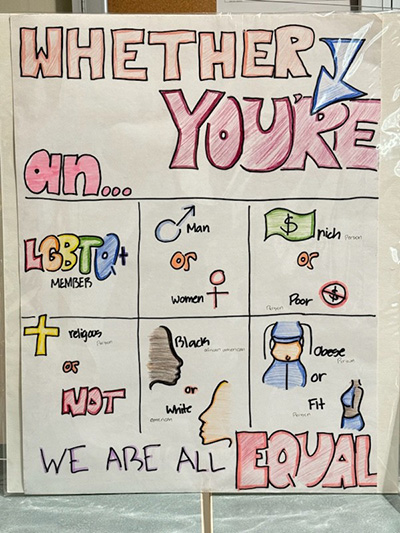 WHETHER
YOU'RE
an...
LGBTQ+
MEMBER
Man
or
Women
$ rich Person
or
Poor Person $
religious
Person
or
NOT
Black
african american
or
White
american
Obese
Person
or
Fit
Person
WE ARE ALL EQUAL